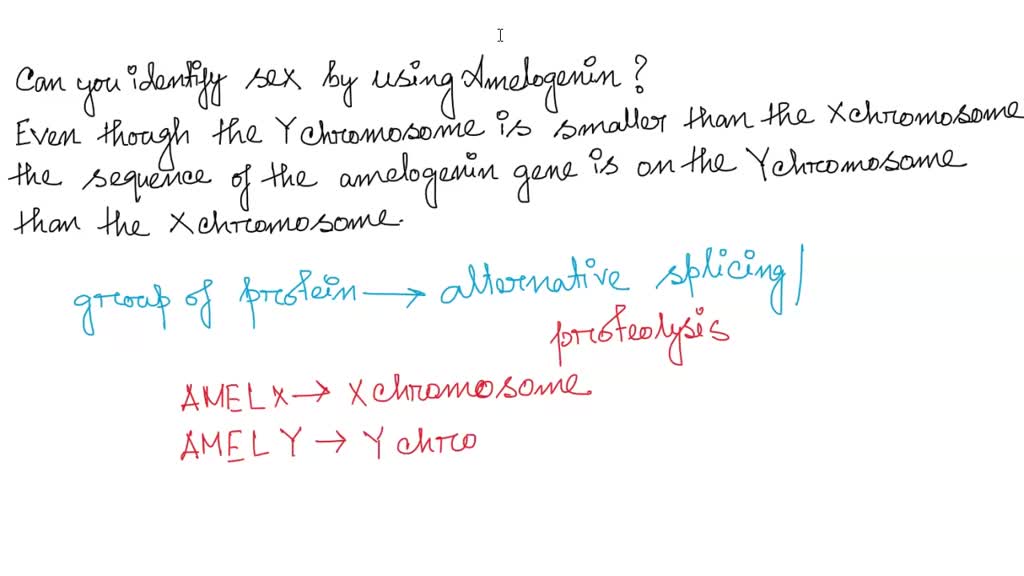 Can you identify sex by using Amelogenin?
Even though the Y chromosome is smaller than the X chromosome
the sequence of the amelogenin gene is on the Y chromosome
than the X chromosome.
group of protein → alternative splicing/
proteolysis
AMELX → X chromosome
AMELY → Y chro